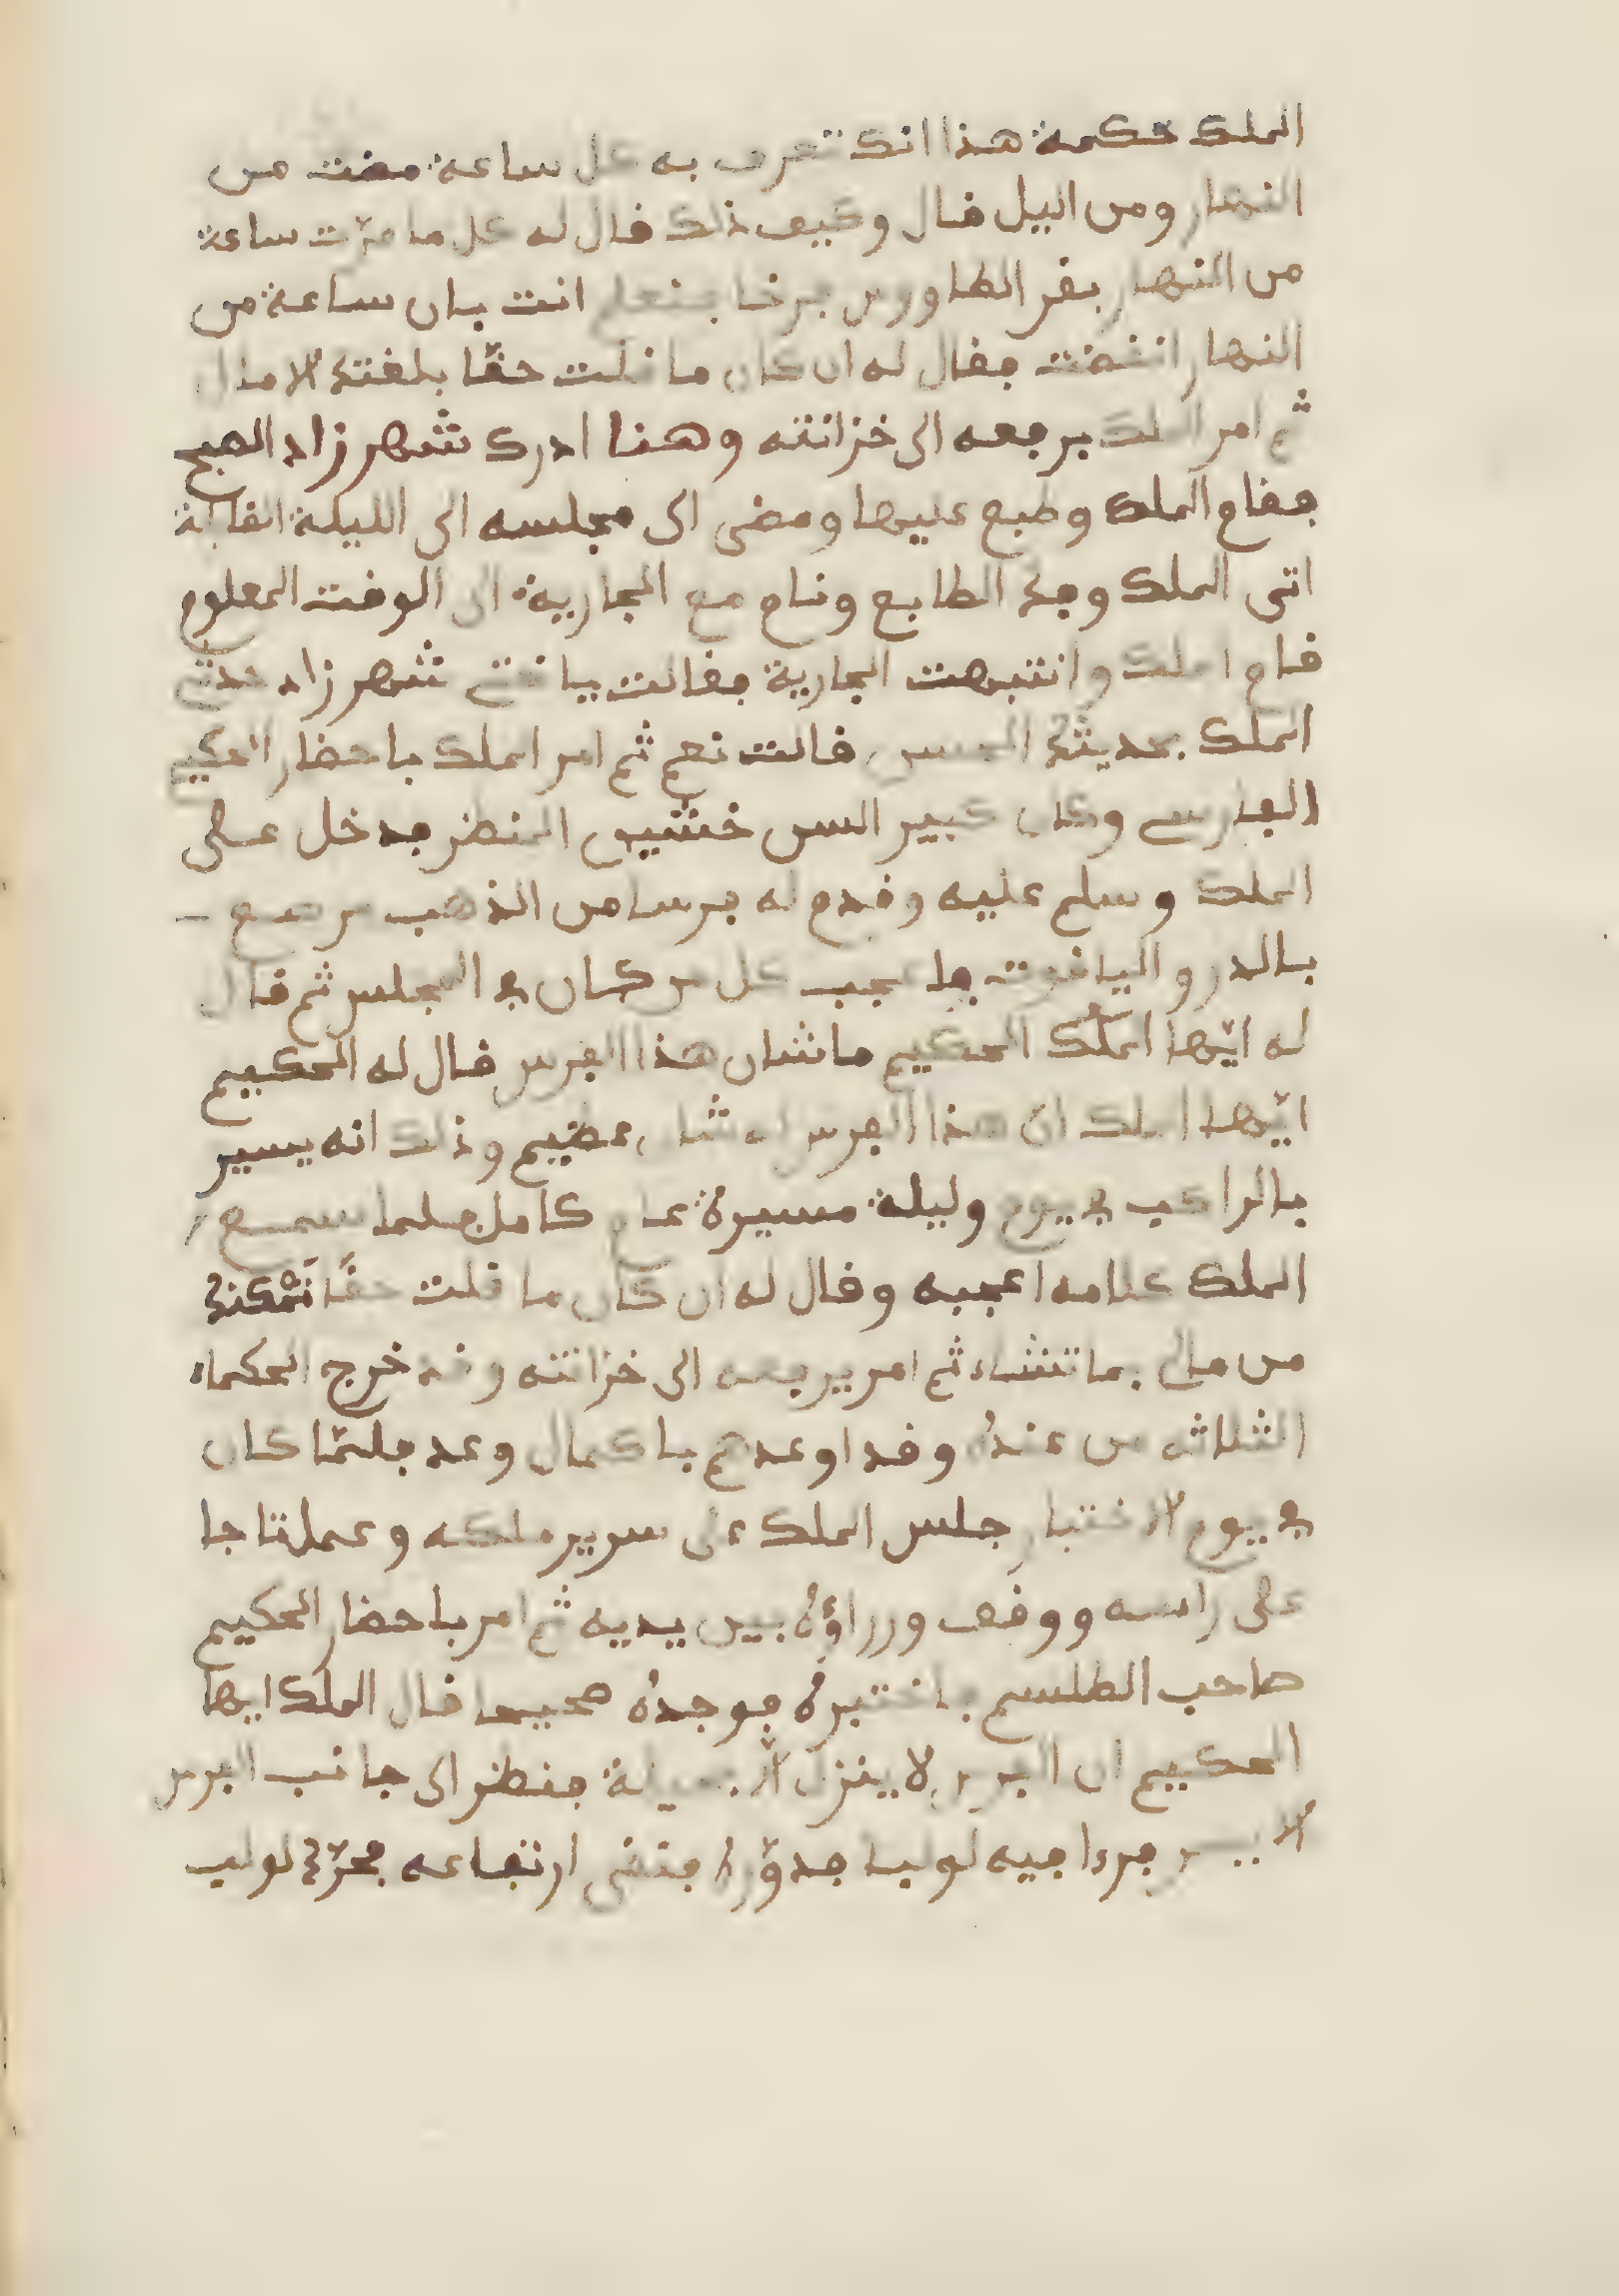 الملك حكمة هذا انك تعرف به كل ساعة مضت من
النهار ومن اليل قال وكيف ذلك قال له كل ما مرّت ساعة
من النهار بفر الطاووس فتعلم انت بان ساعة من
النهار انقضت فقال له ان كان ما قلت حقّا بلغتك الامال
ثم امر الملك برفعه الى خزانته وهنا ادرك شهرزاد الصبح
فقام الملك وطبع عليها ومضى الى مجلسه الى الليلة القابلة
اتى الملك وفك الطابع ونام مع الجارية الى الوقت المعلوم
قام الملك وانتبهت الجارية فقالت يا ختي شهرزاد حدثي
الملك بحديثك الحسن قالت نعم ثم امر الملك باحضار الحكيم
الفارسي وكان كبير السن خشين المنظر فدخل على
الملك وسلم عليه وقدم له فرسا من الذهب مرصع
بالدر والياقوت فاعجب كل من كان في المجلس ثم قال
له ايّها الملك الحكيم ما شان هذا الفرس قال له الحكيم
ايّها الملك انّ هذا الفرس له شان عظيم وذلك انه يسير
بالراكب في يوم وليلة مسيرة عام كامل فلما سمع
الملك كلامه اعجبه وقال له ان كان ما قلت حقًا نَمْكنك
من مالي بما تشاء ثم امر برفعه الى خزانته وقد خرج الحكماء
الثلاث من عنده وقد اوعدهم باكمال وعد فلمّا كان
في يوم الاختبار جلس الملك على سرير ملكه وعمل تاجا
على راسه ووقف وزراؤه بين يديه ثم امر باحضار الحكيم
صاحب الطلسم فاختبره فوجده صحيحا قال الملك ايها
الحكيم ان الفرس لا ينزل الا بحيلة فنظر الى جانب الفرس
الايسر فرءا فيه لولبا مدوّرا فنقى ارتفاعه فحرّك لولب